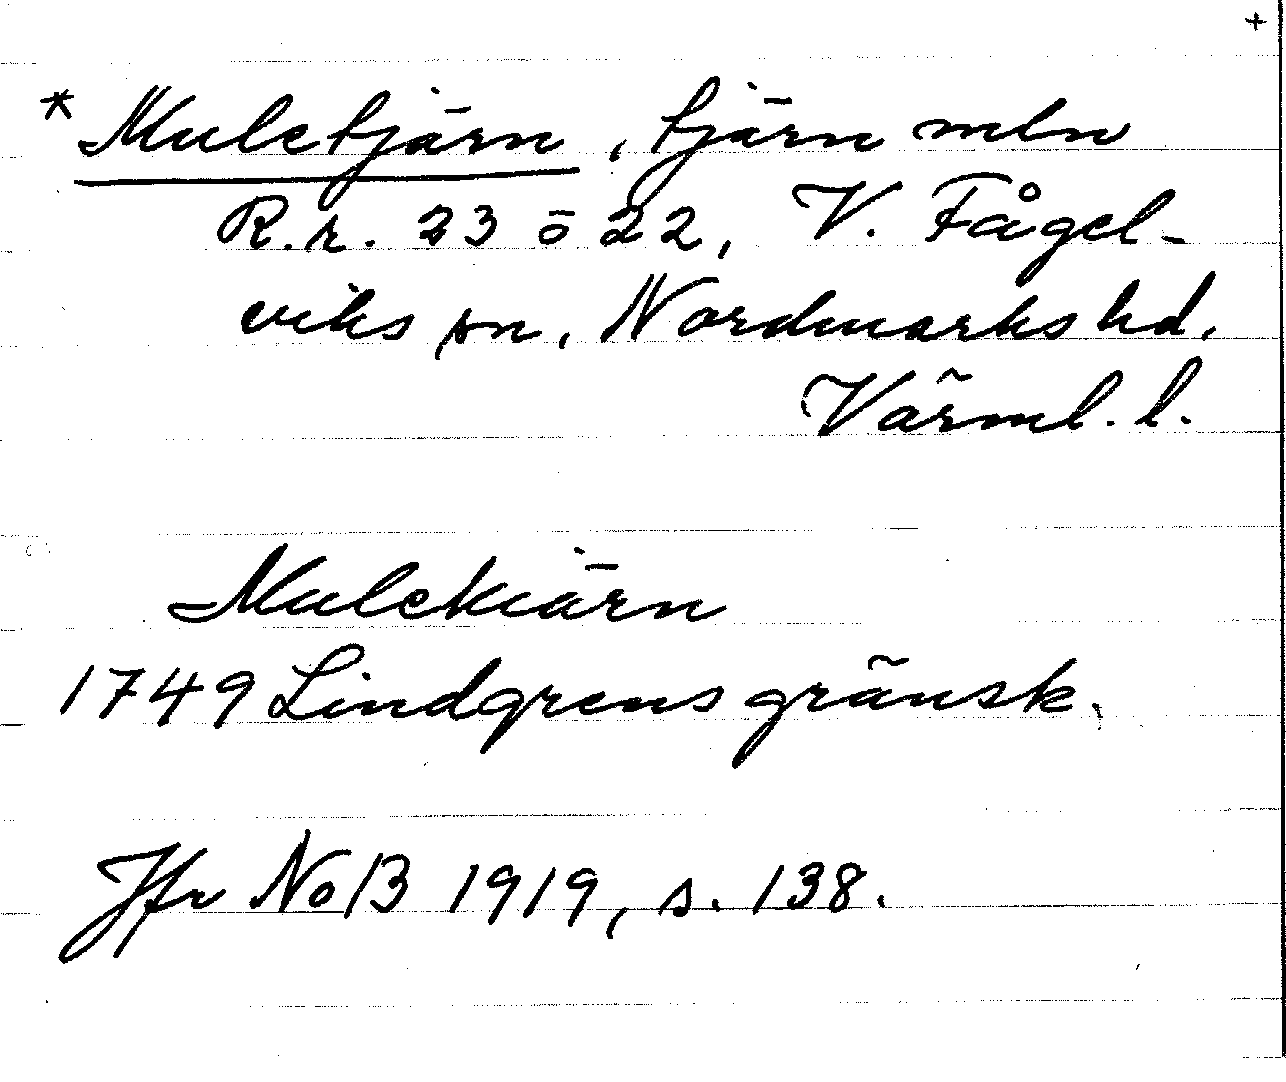 +
* Muletjärn, tjärn mln
R.r. 23 o 22, V. Fågel-
viks sn, Nordmarks hd,
Värml. l.
Mulekiärn
1749 Lindgrens gränsk.
Jfr NoB 1919, s. 138.